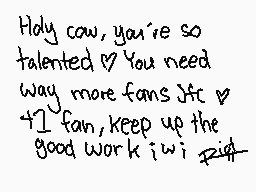 Holy cow, you're so
talented ♡ You need
way more fans Jfc ♡
+1 fan, keep up the
good work iwi